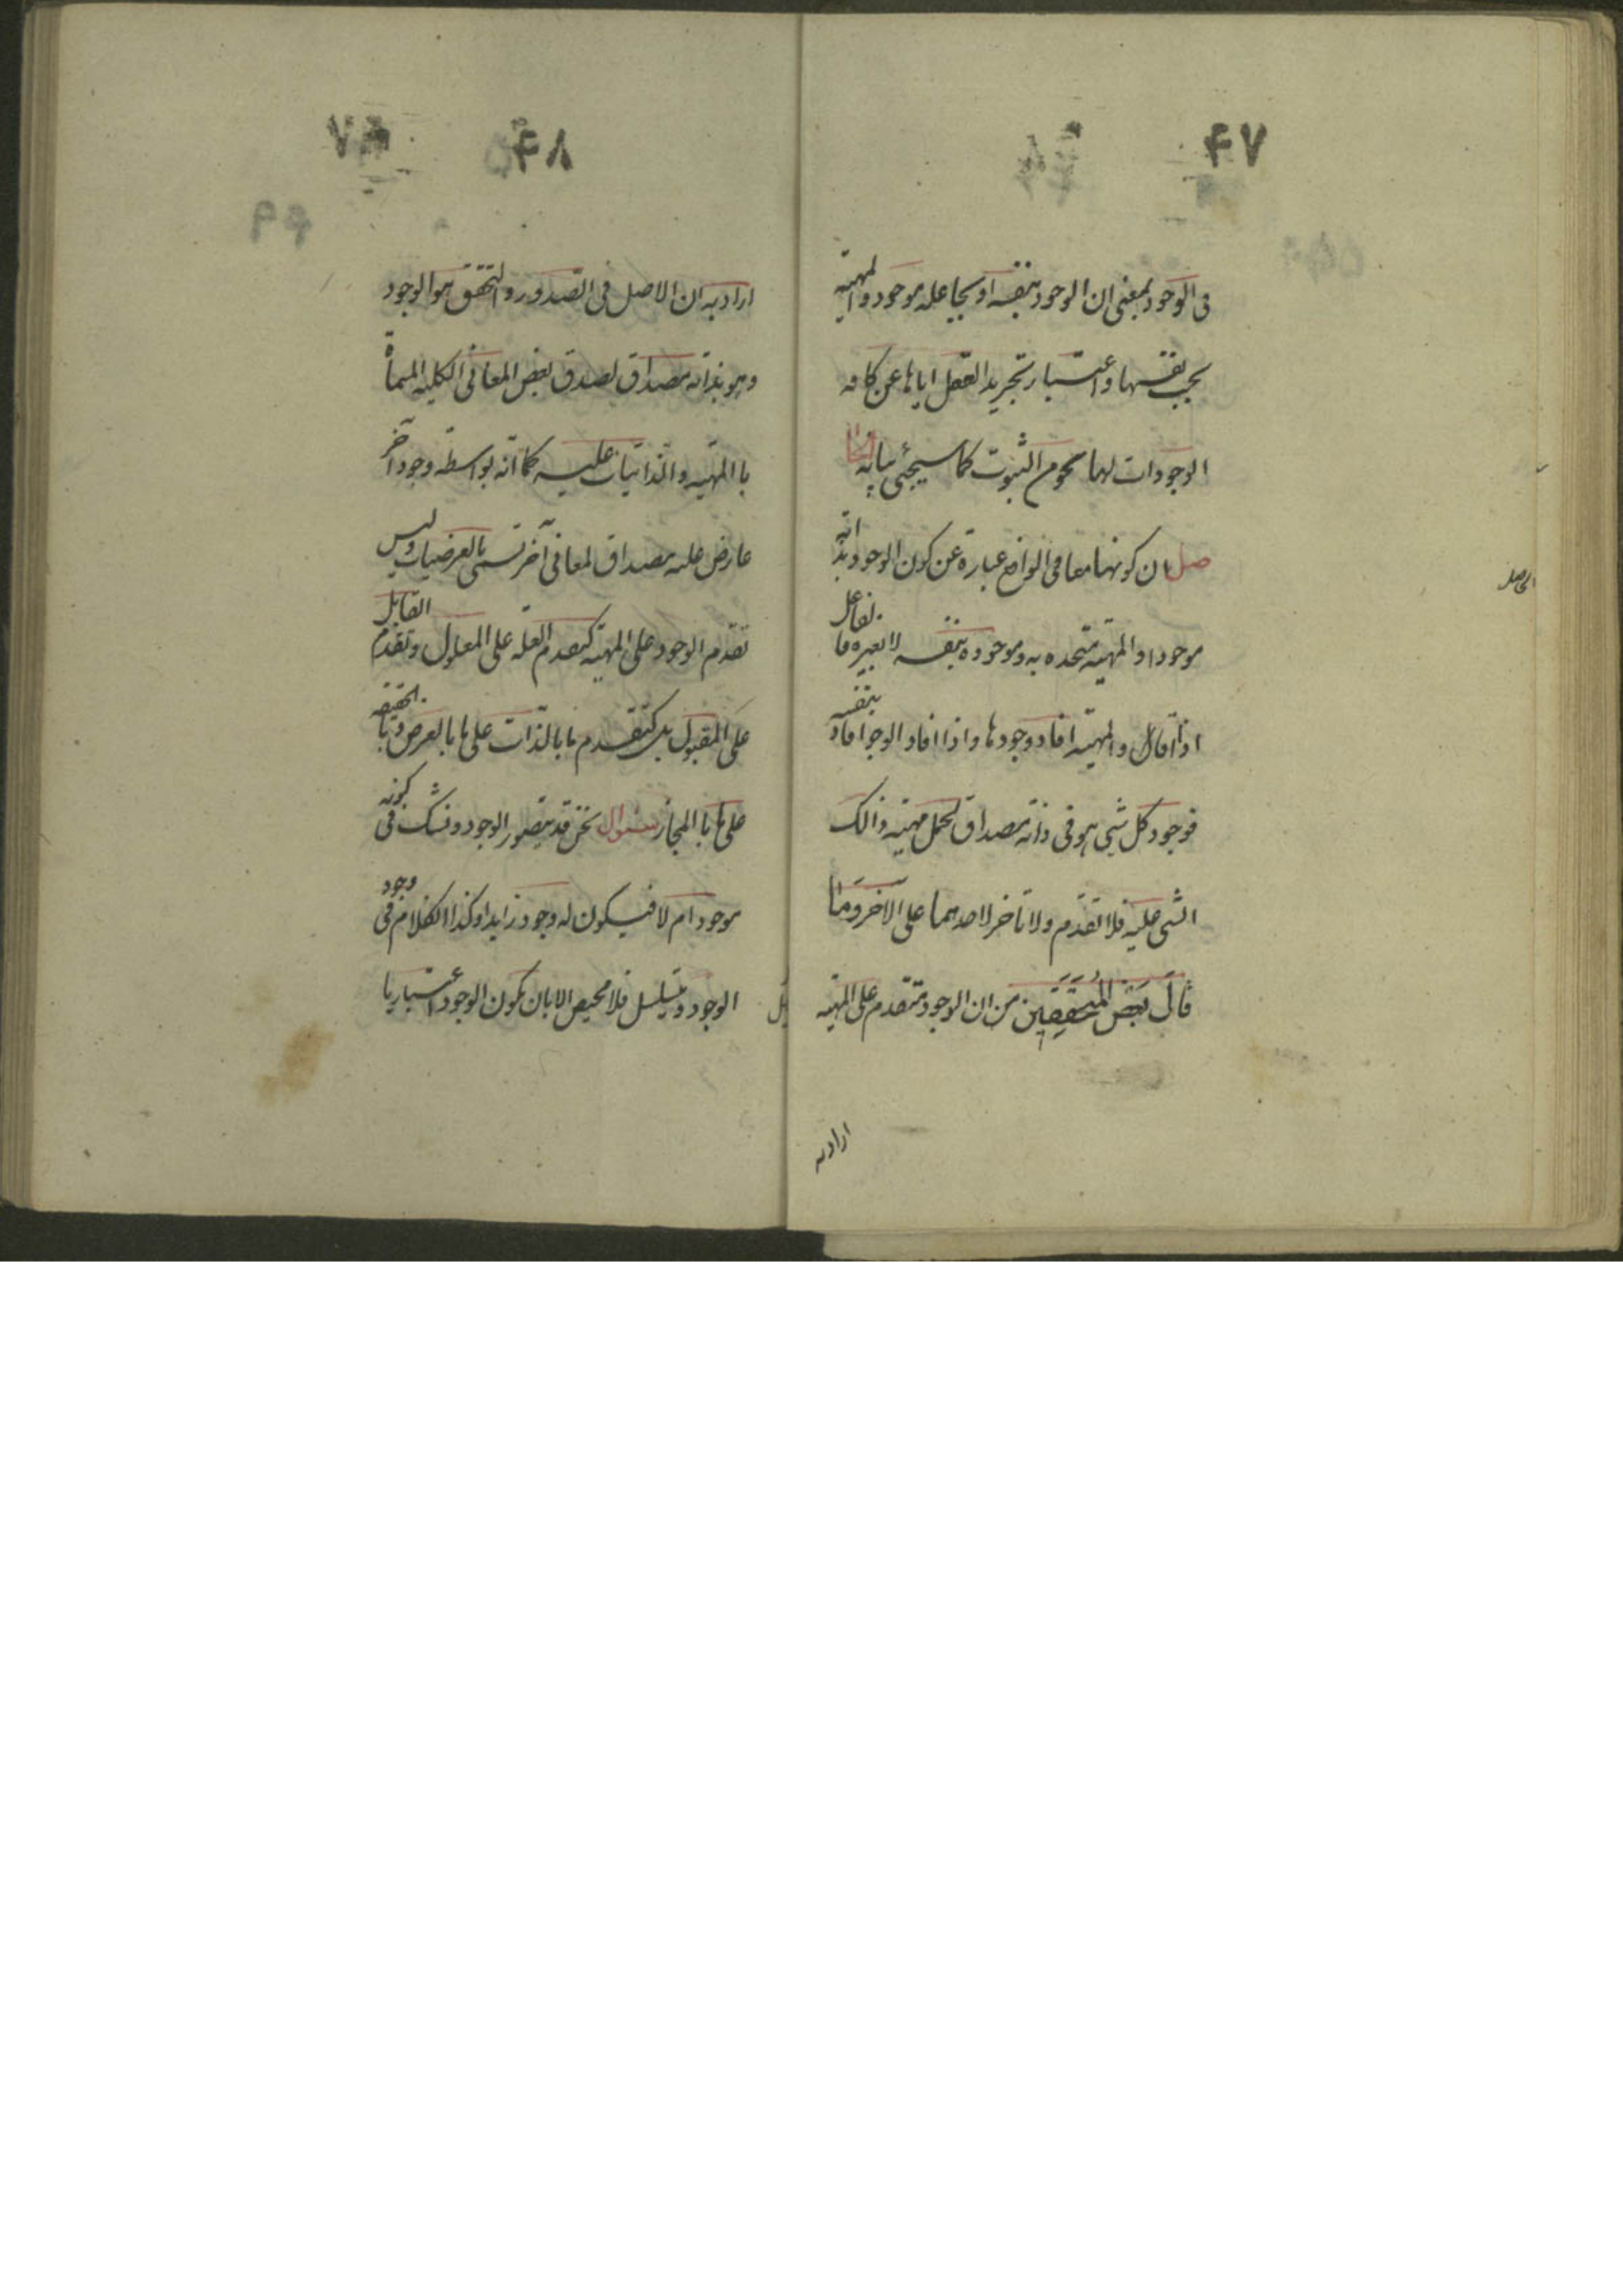 ۴۷
فى الوجود بمعنى ان الوجود بنفسه او بجاعله موجود والمهيته
بحسب نفسها واعتبار تجريد العقل اياها عن كافه
الوجودات لها نحو من الثبوت كما سيجئى بيانه
صل ان كونهما معا فى الواقع عبارة عن كون الوجود بذاته
موجودا والمهيته متحده به وموجوده بنفسه لا بغيره فا لفاعل
اذا افال والمهيته افاد وجودها واذا افاد الوجو افاد بنفسه
فوجود كل شيى هو فى ذاته مصداق لحمل مهيته ذالك
الشى عليه فلا تقدم ولا تاخر لاحدهما على الاخر وما
قال بعض المحققين من ان الوجود متقدم على المهيته
ارادبه
الحاصل
۴۸
ارادبه ان الاصل فى الصدور والتحقق هو الوجود
وهو بذاته مصداق لصدق بعض المعانى الكليه المسماة
با المهيته والذاتيات عليه كما انه بواسطه وجود آخر
عارض عليه مصداق لمعانى آخر تسمى بالعرضيات وليس
تقدم الوجود على المهيته كتقدم العله على المعلول وتقدم القابل
على المقبول بل كتقدم ما بالذات على ما بالعرض وما بالحقيقه
على ما با المجاز سئوال نحن قد يتصور الوجود ونشك فى كونه
موجود ام لا فيكون له وجود زايد او كذا الكلام فى وجود
الوجود ويتسلسل فلا محيص الا بان يكون الوجود اعتباريا